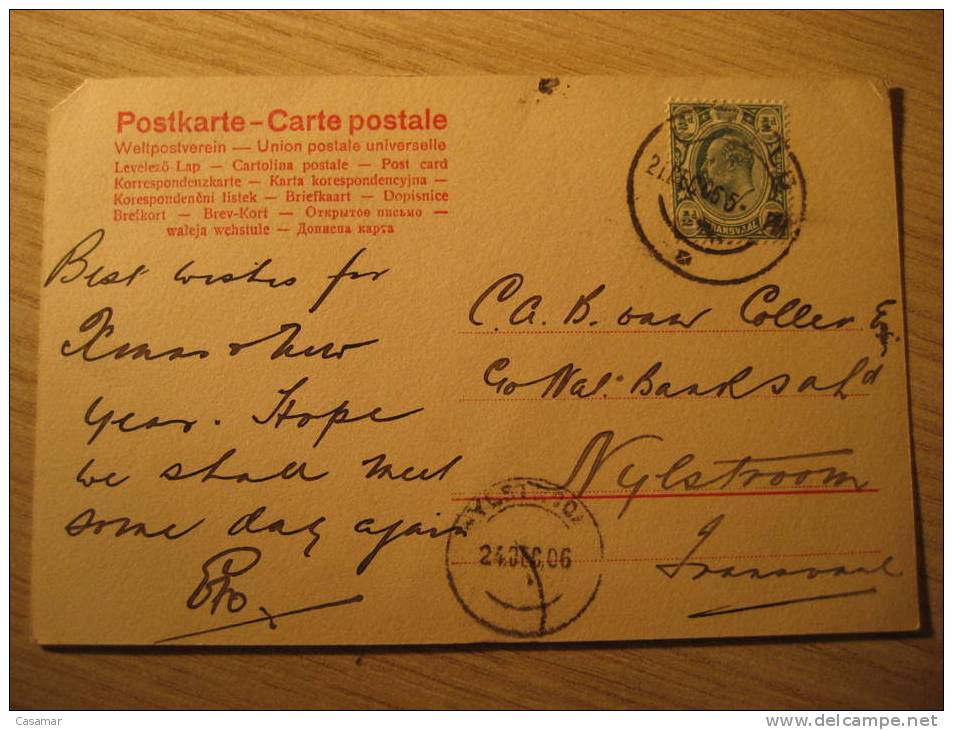 Postkarte – Carte postale
Weltpostverein — Union postale universelle
Levelező-Lap — Cartolina postale — Post card
Korrespondenzkarte — Karta korespondencyjna —
Korespondenční lístek — Briefkaart — Dopisnice
Brefkort — Brev-Kort — Открытое письмо —
waleja wehstule — Дописна карта
Best wishes for
Xmas & New
Year. Hope
we shall meet
some day again
C. A. B. van Coller Esq
c/o Nat: Bank S A Ld
Nylstroom
Transvaal
TRANSVAAL
NYLSTROOM
24 DEC 06
Casamar
www.delcampe.net